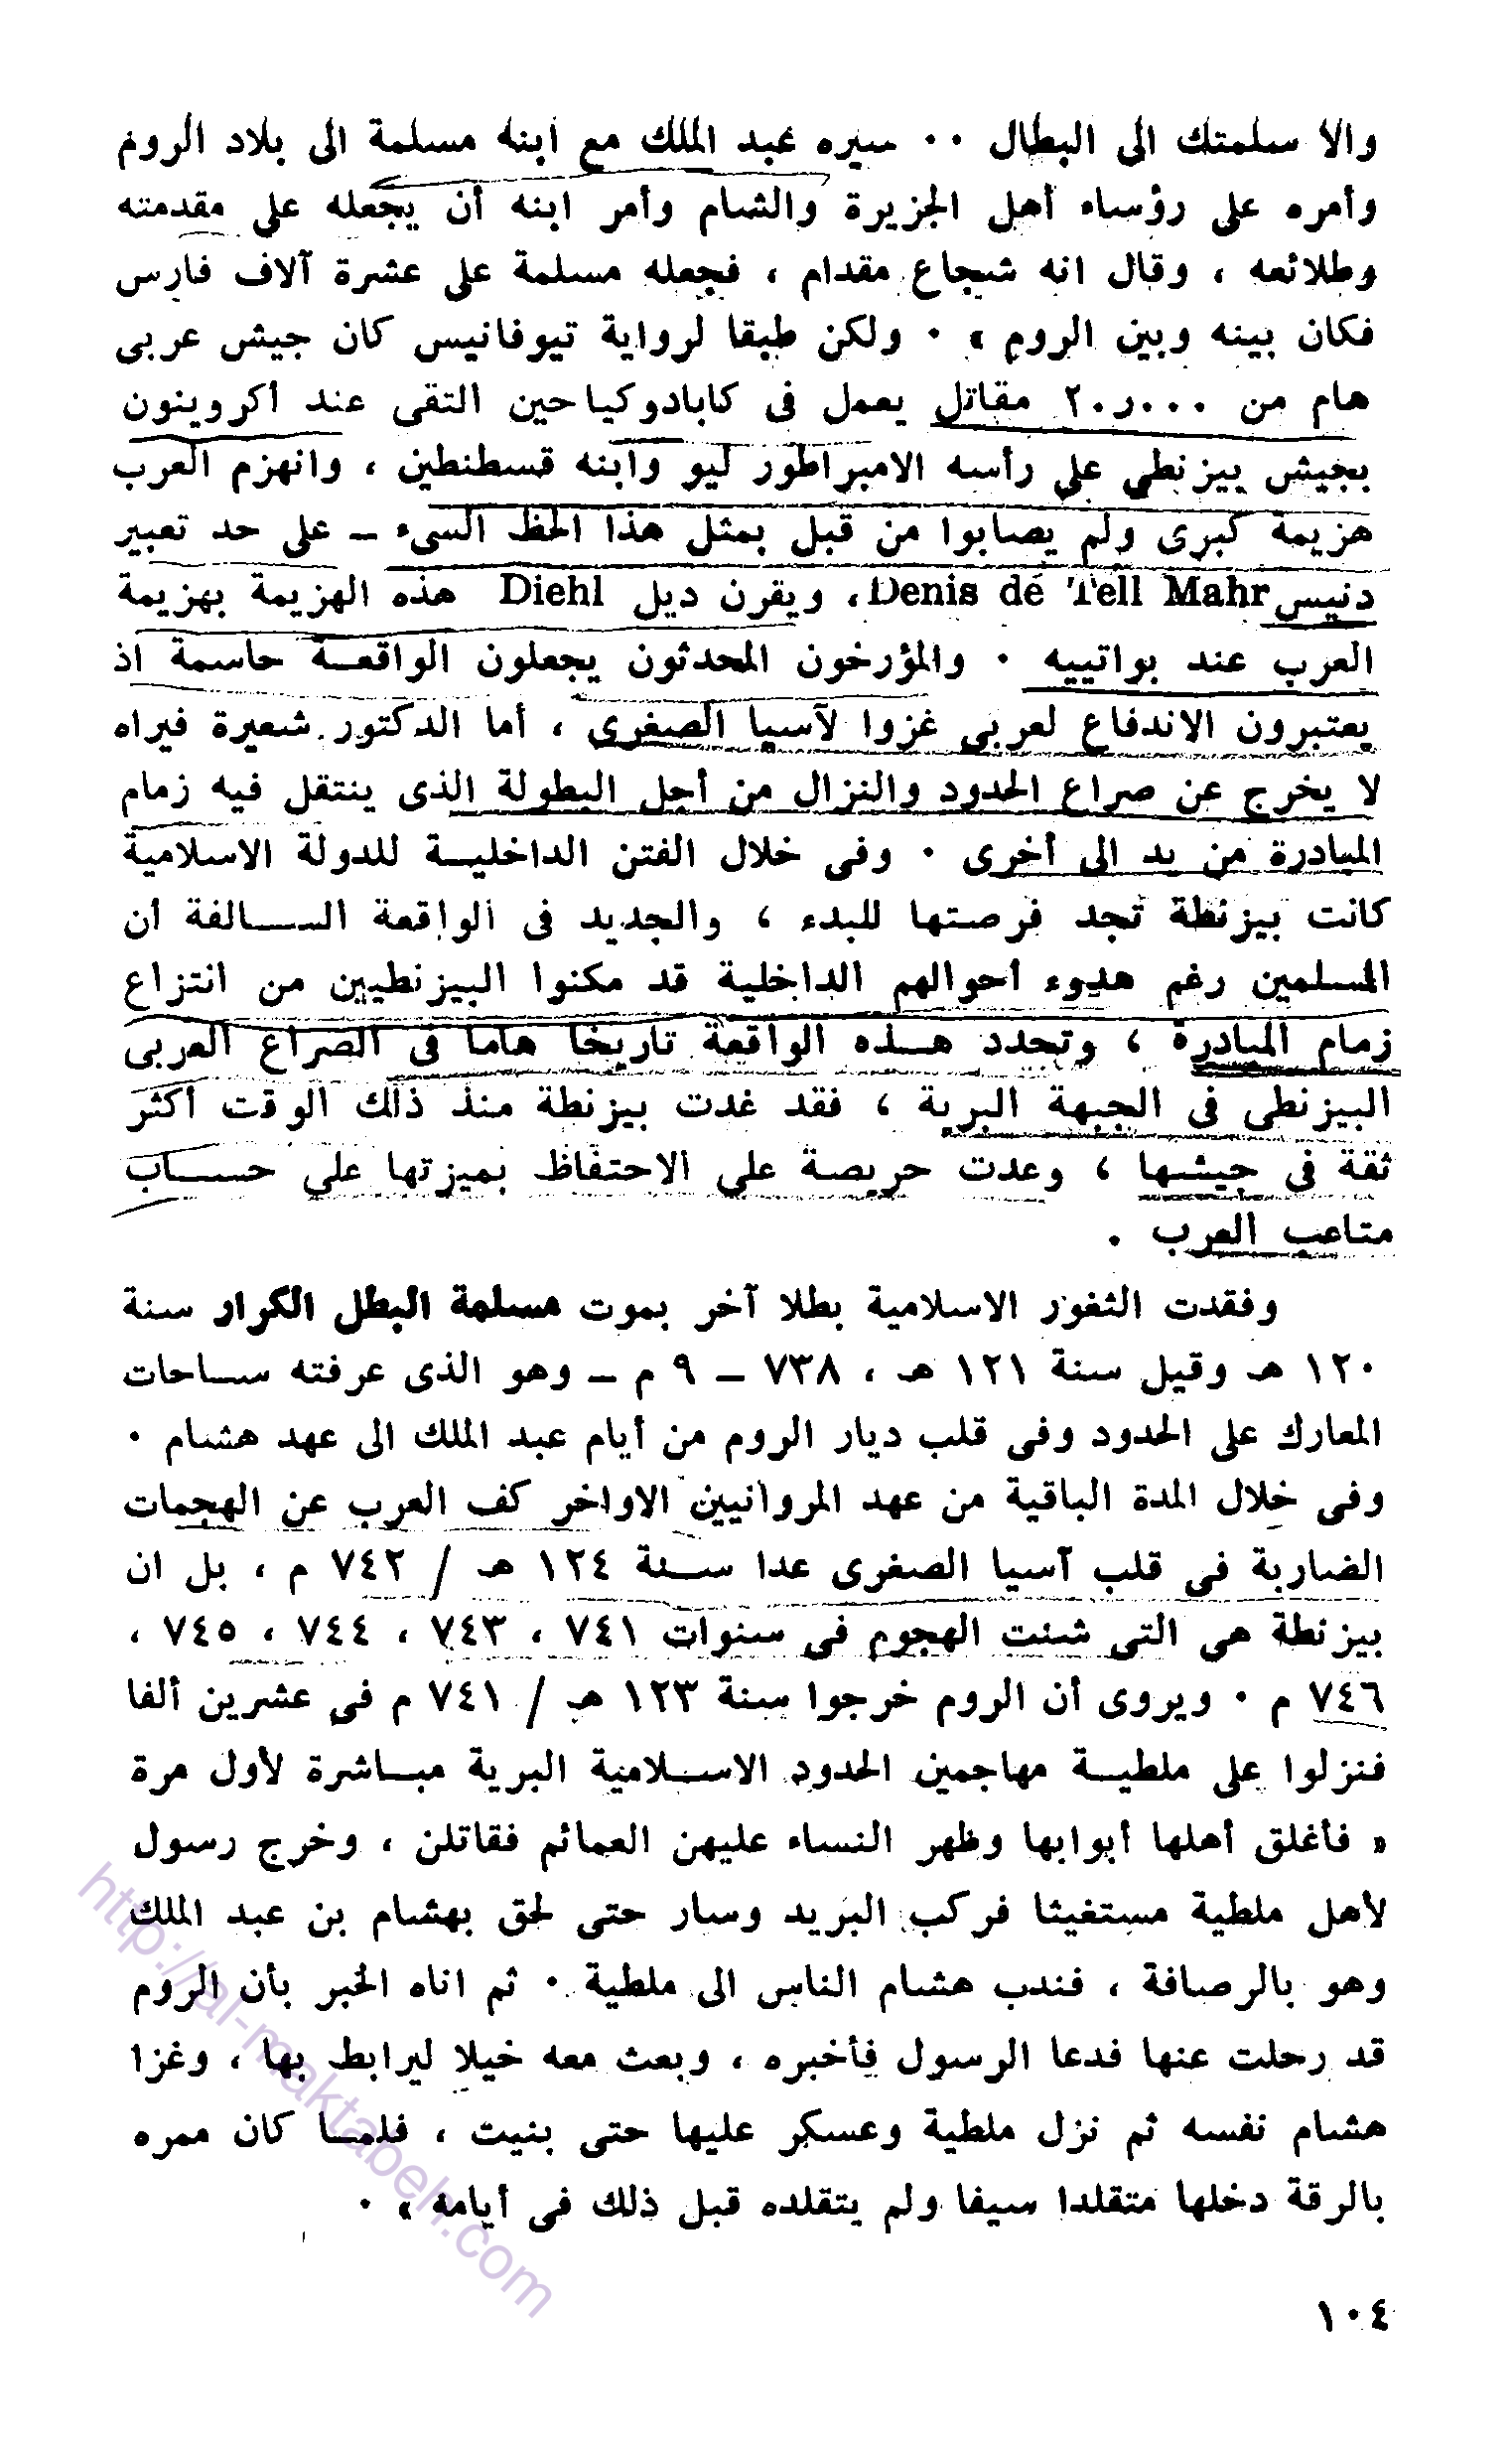 والا سلمتك الى البطال ٠٠ سيره عبد الملك مع ابنه مسلمة الى بلاد الروم
وأمره على رؤساء أهل الجزيرة والشام وأمر ابنه أن يجعله على مقدمته
وطلائعه ، وقال انه شجاع مقدام ، فجعله مسلمة على عشرة آلاف فارس
فكان بينه وبين الروم » ٠ ولكن طبقا لرواية تيوفانيس كان جيش عربى
هام من ٢٠٫٠٠٠ مقاتل يعمل فى كابادوكيا حين التقى عند أكروينون
بجيش بيزنطى على رأسه الامبراطور ليو وابنه قسطنطين ، وانهزم العرب
هزيمة كبرى ولم يصابوا من قبل بمثل هذا الحظ السىء – على حد تعبير
دنيس Denis de Tell Mahr ، ويقرن ديل Diehl هذه الهزيمة بهزيمة
العرب عند بواتييه ٠ والمؤرخون المحدثون يجعلون الواقعة حاسمة اذ
يعتبرون الاندفاع لعربى غزوا لآسيا الصغرى ، أما الدكتور شعيرة فيراه
لا يخرج عن صراع الحدود والنزال من أجل البطولة الذى ينتقل فيه زمام
المبادرة من يد الى أخرى ٠ وفى خلال الفتن الداخلية للدولة الاسلامية
كانت بيزنطة تجد فرصتها للبدء ، والجديد فى الواقعة السالفة أن
المسلمين رغم هدوء أحوالهم الداخلية قد مكنوا البيزنطيين من انتزاع
زمام المبادرة ، وتحدد هذه الواقعة تاريخا هاما فى الصراع العربى
البيزنطى فى الجبهة البرية ، فقد غدت بيزنطة منذ ذلك الوقت أكثر
ثقة فى جيشها ، وغدت حريصة على الاحتفاظ بميزتها على حساب
متاعب العرب .
وفقدت الثغور الاسلامية بطلا آخر بموت مسلمة البطل الكرار سنة
١٢٠ هـ وقيل سنة ١٢١ هـ ، ٧٣٨ – ٩ م – وهو الذى عرفته ساحات
المعارك على الحدود وفى قلب ديار الروم من أيام عبد الملك الى عهد هشام ٠
وفى خلال المدة الباقية من عهد المروانيين الاواخر كف العرب عن الهجمات
الضاربة فى قلب آسيا الصغرى عدا سنة ١٢٤ هـ / ٧٤٢ م ، بل ان
بيزنطة هى التى شنت الهجوم فى سنوات ٧٤١ ، ٧٤٣ ، ٧٤٤ ، ٧٤٥ ،
٧٤٦ م ٠ ويروى أن الروم خرجوا سنة ١٢٣ هـ / ٧٤١ م فى عشرين ألفا
فنزلوا على ملطية مهاجمين الحدود الاسلامية البرية مباشرة لأول مرة
« فأغلق أهلها أبوابها وظهر النساء عليهن العمائم فقاتلن ، وخرج رسول
لأهل ملطية مستغيثا فركب البريد وسار حتى لحق بهشام بن عبد الملك
وهو بالرصافة ، فندب هشام الناس الى ملطية ٠ ثم اتاه الخبر بأن الروم
قد رحلت عنها فدعا الرسول فأخبره ، وبعث معه خيلا ليرابط بها ، وغزا
هشام نفسه ثم نزل ملطية وعسكر عليها حتى بنيت ، فلما كان ممره
بالرقة دخلها متقلدا سيفا ولم يتقلده قبل ذلك فى أيامه » ٠
١٠٤
http://al-maktabeh.com